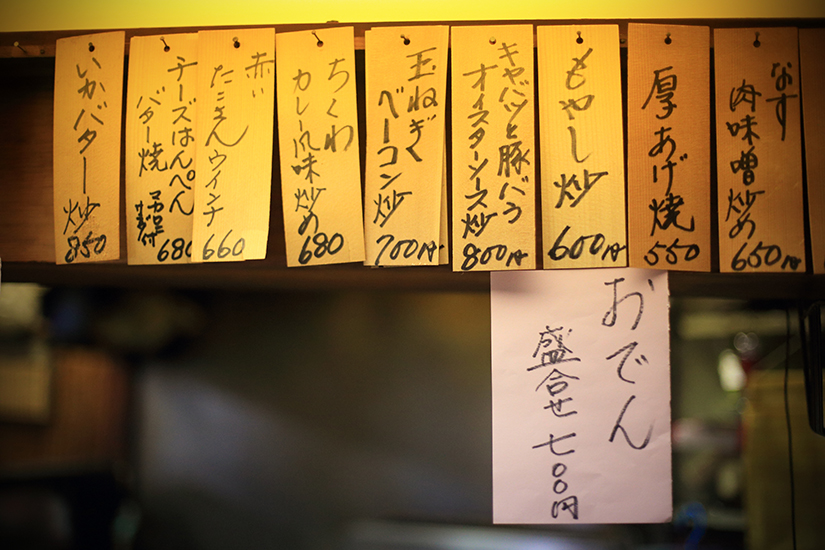 なす
肉味噌炒め
650円
厚あげ焼
550
もやし炒
600円
キャベツと豚バラ
オイスターソース炒
800円
玉ねぎと
ベーコン炒
700円
ちくわ
カレー風味炒め
680
赤い
たこさんウインナ
660
チーズはんぺん
バター焼
680
いかバター炒
850
おでん
盛合せ 七〇〇円